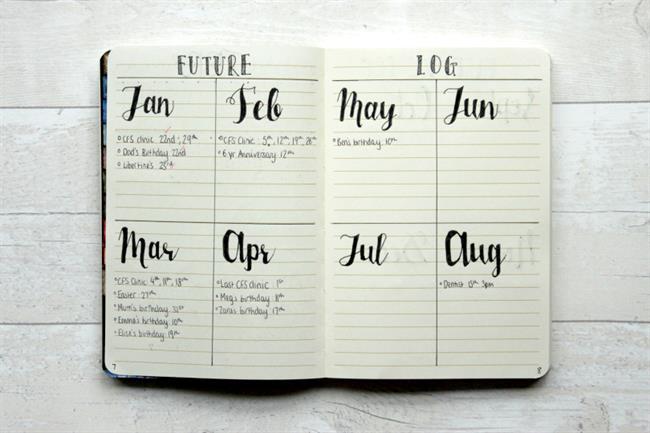 FUTURE
Jan
CFS clinic 22nd, 29th
Dad's Birthday 22nd
Libertine's 23rd
Feb
CFS Clinic 5th, 12th, 19th, 26th
6 yr Anniversary 12th
Mar
CFS Clinic 4th, 11th, 18th
Easter 27th
Mum's birthday 31st
Emma's birthday 10th
Elise's birthday 19th
Apr
Last CFS clinic 1st
Meg's birthday 11th
Zara's birthday 17th
7
LOG
May
Ben's birthday 10th
Jun
Jul
Aug
Dentist 15th 3pm
8